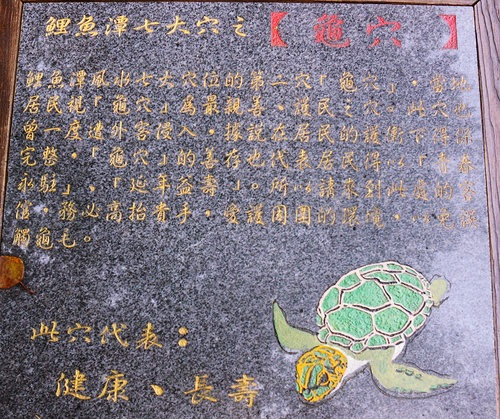 鯉魚潭七大穴之【龜穴】
鯉魚潭風水七大穴位的第二穴「龜穴」，當地
居民視「龜穴」為最親善、護民之穴。此穴也
曾一度遭外客侵入，據說在居民的護衛下得保
完整，「龜穴」的善存也代表居民得以「青春
永駐」，「延年益壽」。所以請來到此處的客
倌，務必高抬貴手，愛護周圍的環境，以免誤
觸龜七。
此穴代表：
健康、長壽